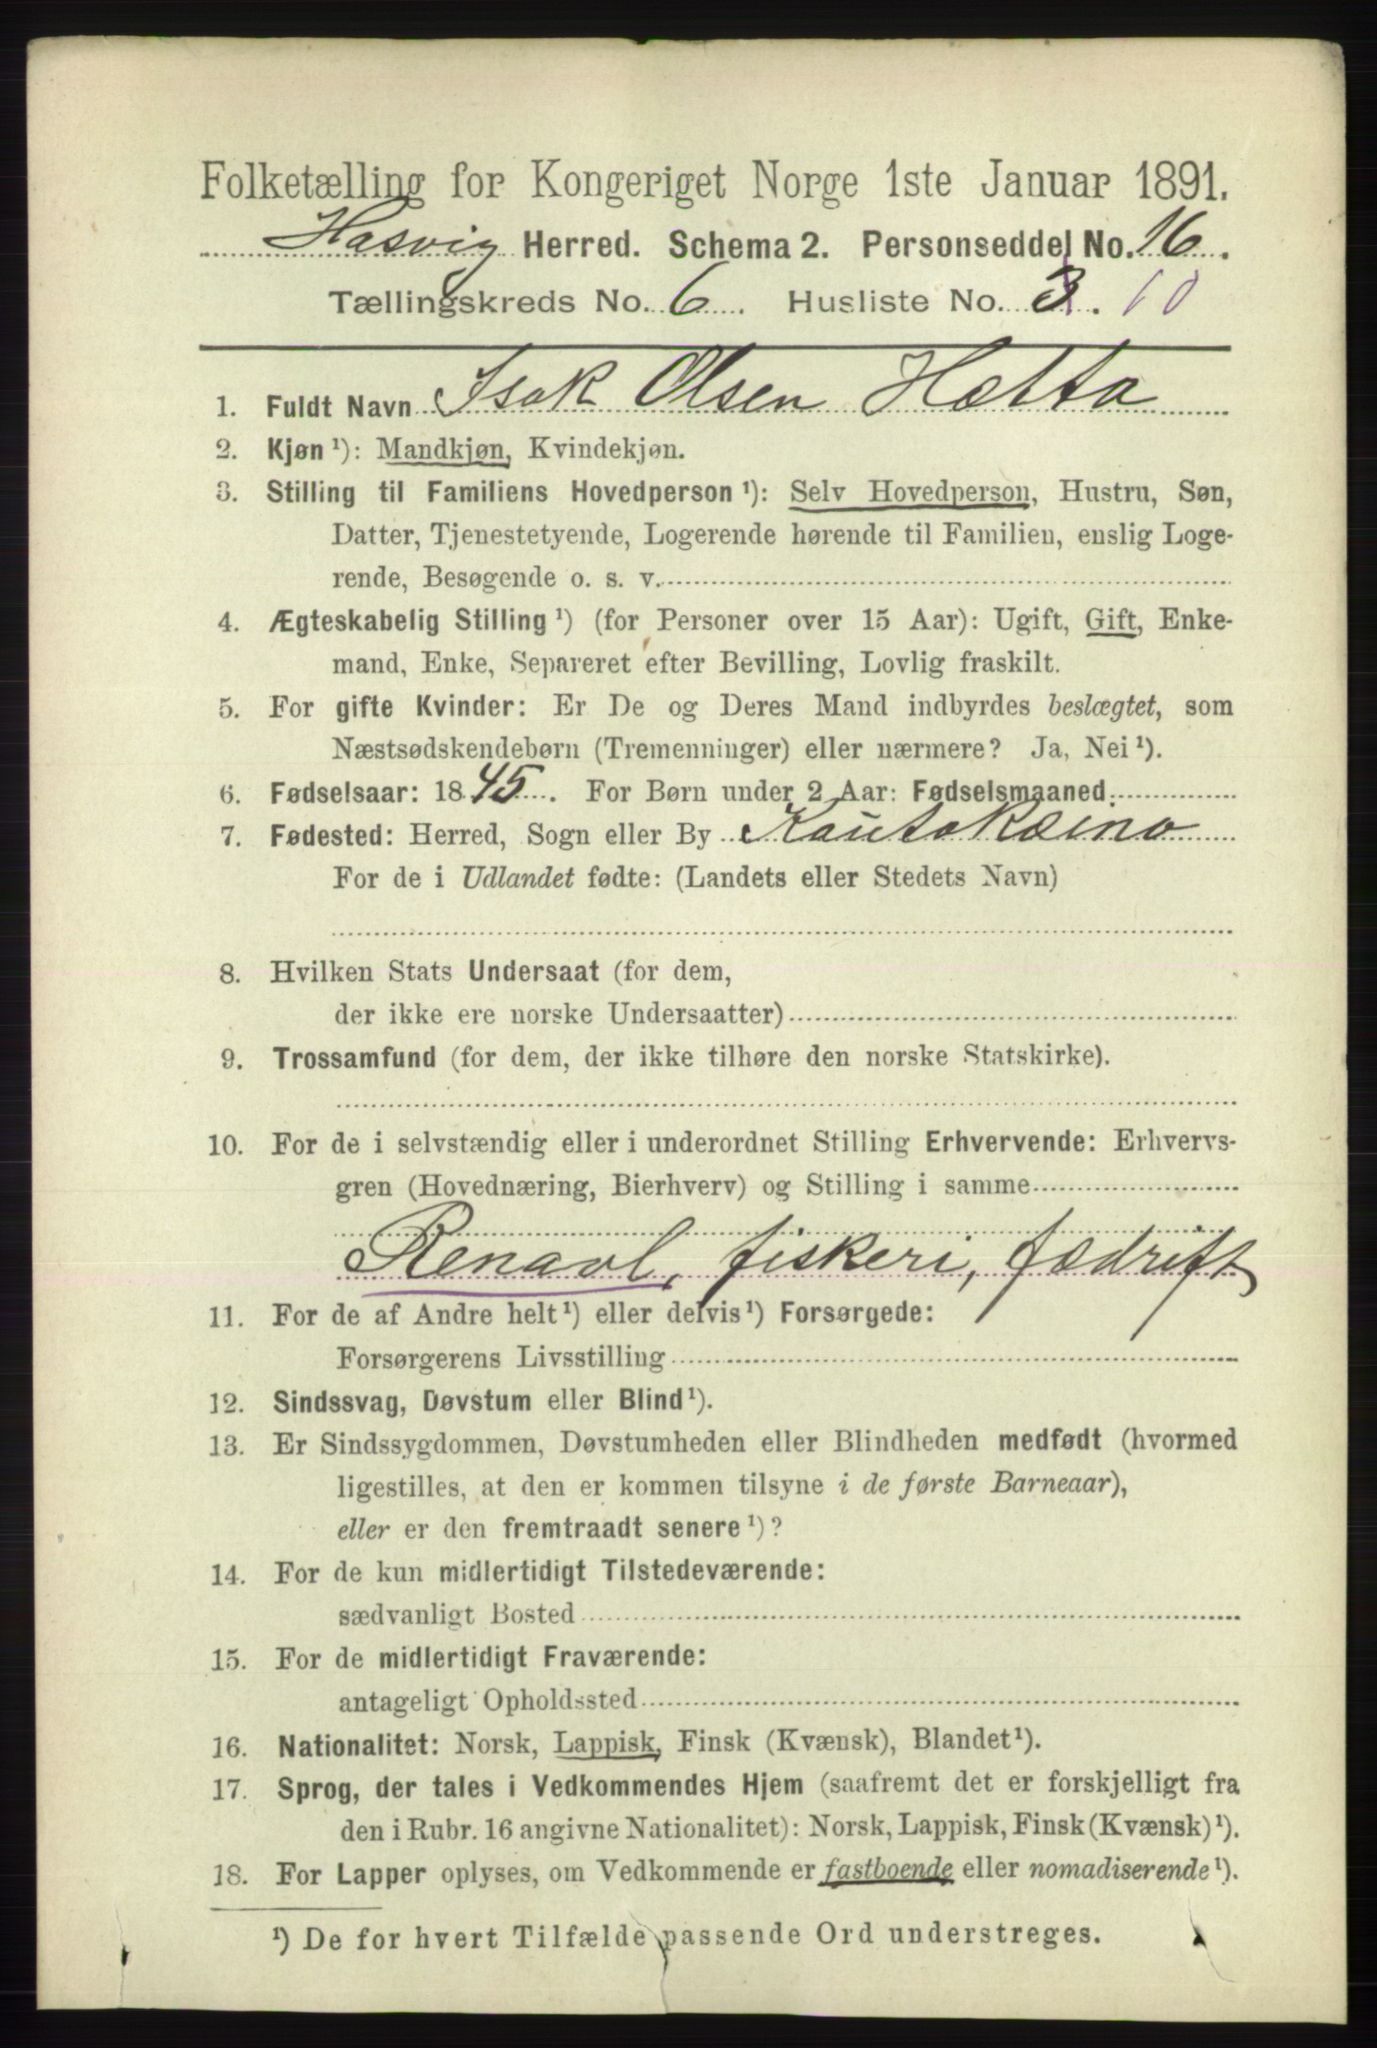 Folketælling for Kongeriget Norge 1ste Januar 1891.
Hasvig Herred. Schema 2. Personseddel No. 16.
Tællingskreds No. 6. Husliste No. 3. 10
1. Fuldt Navn Isak Olsen Hætta
2. Kjøn¹): Mandkjøn, Kvindekjøn.
3. Stilling til Familiens Hovedperson¹): Selv Hovedperson, Hustru, Søn,
Datter, Tjenestetyende, Logerende hørende til Familien, enslig Loge-
rende, Besøgende o. s. v.
4. Ægteskabelig Stilling¹) (for Personer over 15 Aar): Ugift, Gift, Enke-
mand, Enke, Separeret efter Bevilling, Lovlig fraskilt.
5. For gifte Kvinder: Er De og Deres Mand indbyrdes beslægtet, som
Næstsødskendebørn (Tremenninger) eller nærmere? Ja, Nei¹).
6. Fødselsaar: 1845. For Børn under 2 Aar: Fødselsmaaned
7. Fødested: Herred, Sogn eller By Kautokæino
For de i Udlandet fødte: (Landets eller Stedets Navn)
8. Hvilken Stats Undersaat (for dem,
der ikke ere norske Undersaatter)
9. Trossamfund (for dem, der ikke tilhøre den norske Statskirke).
10. For de i selvstændig eller i underordnet Stilling Erhvervende: Erhvervs-
gren (Hovednæring, Bierhverv) og Stilling i samme
Renavl, fiskeri, fædrift
11. For de af Andre helt¹) eller delvis¹) Forsørgede:
Forsørgerens Livsstilling
12. Sindssvag, Døvstum eller Blind¹).
13. Er Sindssygdommen, Døvstumheden eller Blindheden medfødt (hvormed
ligestilles, at den er kommen tilsyne i de første Barneaar),
eller er den fremtraadt senere¹)?
14. For de kun midlertidigt Tilstedeværende:
sædvanligt Bosted
15. For de midlertidigt Fraværende:
antageligt Opholdssted
16. Nationalitet: Norsk, Lappisk, Finsk (Kvænsk), Blandet¹).
17. Sprog, der tales i Vedkommendes Hjem (saafremt det er forskjelligt fra
den i Rubr. 16 angivne Nationalitet): Norsk, Lappisk, Finsk (Kvænsk)¹).
18. For Lapper oplyses, om Vedkommende er fastboende eller nomadiserende¹).
¹) De for hvert Tilfælde passende Ord understreges.